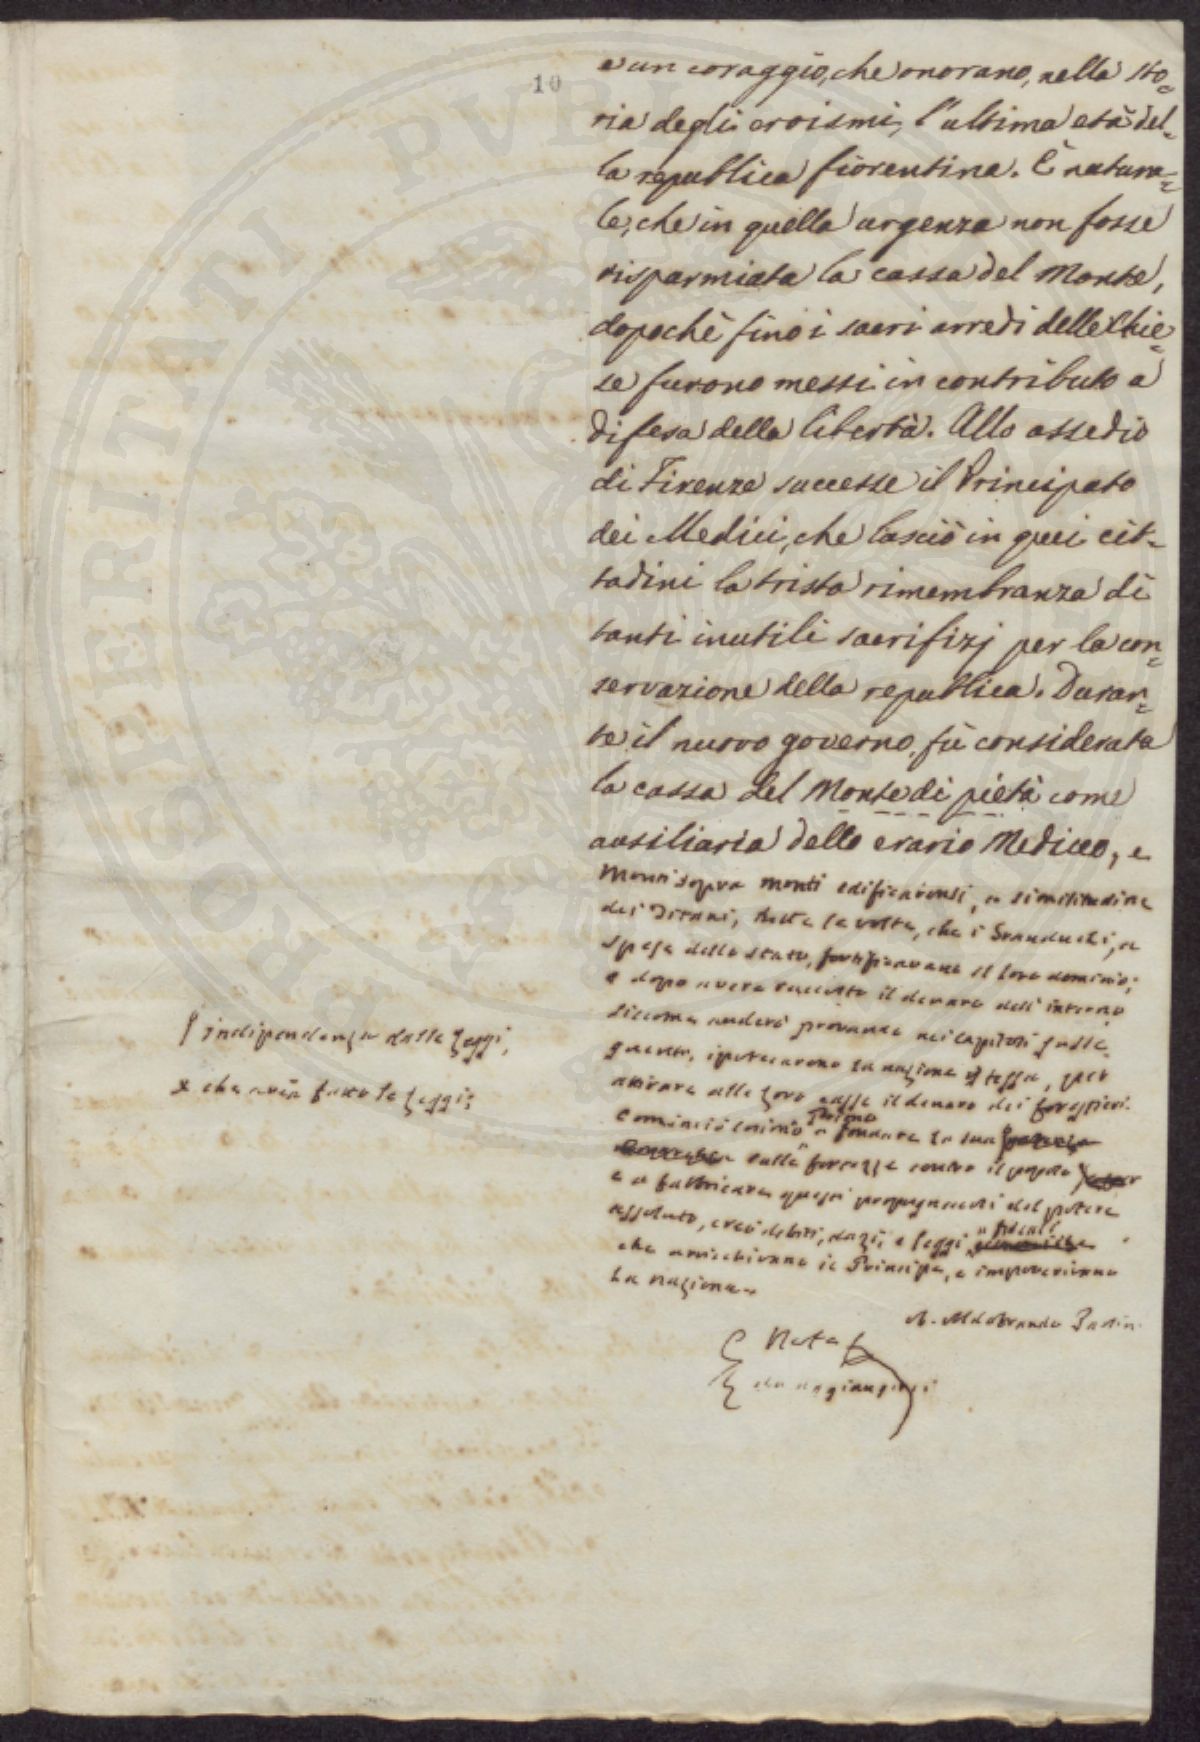 10
e un coraggio, che onorano, nella sto=
ria degli eroismi, l'ultima età del=
la republica fiorentina. È natura=
le, che in quella urgenza non fosse
risparmiata la cassa del Monte,
dopochè fino i sacri arredi delle Chie=
se furono messi in contributo a
difesa della libertà. Allo assedio
di Firenze successe il Principato
dei Medici, che lasciò in quei cit=
tadini la trista rimembranza di
tanti inutili sacrifizj per la con=
servazione della republica. Duran=
te il nuovo governo, fù considerata
la cassa del Monte di pietà come
ausiliaria dello erario Mediceo, e
Monti sopra monti edificaronsi, a similitudine
dei Titani, tutte le volte, che i Granduchi, a
spese dello stato, fortificavano il loro dominio;
e dopo avere raccolto il denaro dell'interno
siccome anderò provando nei capitoli susse=
guenti, ipotecarono la nazione stessa, per
attirare alle loro casse il denaro dei forestieri.
Cominciò Cosimo Primo a fondare la sua
sulle fortezze contro il popolo
e a fabbricare questi propugnacoli del potere
assoluto, creò debiti, dazj, e leggi
che arricchirono il Principe, e impoverirono
la nazione.
l'indipendenza dalle leggi,
e che avea fatto le leggi;
A. Aldobrando Paolin
Nota
da aggiungersi
PERITATI PVBLICAE